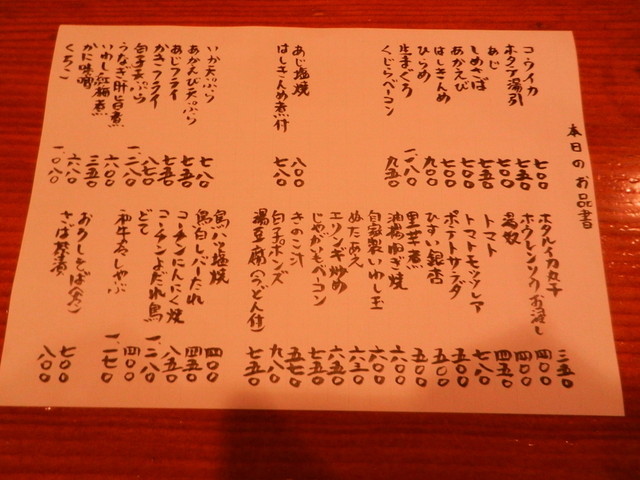 本日のお品書
コウイカ 七〇〇
ホタテ湯引 七〇〇
あじ 七〇〇
しめさば 七五〇
あかえび 七〇〇
はしきんめ 七〇〇
ひらめ 九〇〇
生まぐろ
くじらベーコン 九五〇
あじ塩焼 八〇〇
はしきんめ煮付 七八〇
いか天ぷら 七八〇
あかえび天ぷら 七五〇
あじフライ 七五〇
かきフライ 八七〇
白子天ぷら 一、二八〇
うなぎ肝旨煮 六〇〇
いわし紅梅煮 三五〇
かに味噌 六八〇
くちこ 一、〇八〇
ホタルイカ丸干 三五〇
ホウレンソウお浸し 四〇〇
湯奴 四〇〇
トマト 四五〇
トマトモッツァレア 七八〇
ポテトサラダ 五〇〇
ひすい銀杏 五〇〇
里芋煮 五〇〇
油揚ねぎ焼 六〇〇
自家製いわし玉 六〇〇
ぬたあえ 六三〇
エリンギ炒め 六五〇
じゃがいもベーコン 七五〇
きのこ汁 五七〇
白子ポンズ 九八〇
湯豆腐(うどん付) 七五〇
鳥ハツ塩焼 四〇〇
鳥白レバーたれ 四五〇
コーチンにんにく焼 八五〇
コーチンよだれ鳥 一、二八〇
どて 四〇〇
和牛冷しゃぶ 一、一七〇
おろしそば 七〇〇
さば棒 八〇〇